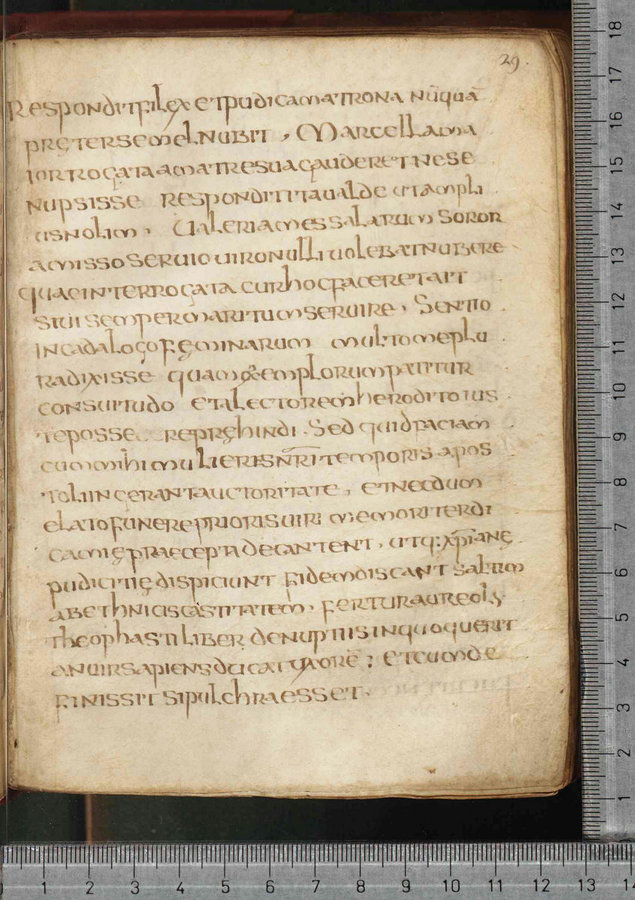 29.
Respondit filex et pudica matrona nūquā
pręter semel nubit, Marcella ma
ior rogata a matre sua gauderet ne se
nupsisse respondit ita ualde ut ampli
us nolim. Ualeria messalarum soror
amisso seruio uiro nulli uolebat nubere
quae interrogata cur hoc faceret ait
sibi semper maritum seruire. Sentio
in cadalogo feminarum multo me plu
ra dixisse quam exemplorum patitur
consuitudo et a lectorem herodito ius
te posse repręhindi. Sed quid faciam
cum mihi mulieris nr̄i temporis apos
toli ingerant auctoritate, et necdum
elato funere prioris uiri memoriter di
camię praecepta decantent, utq; xp̄ianę
pudicitię dispiciunt fidem discant saltim
ab ethnicis castitatem. fertur aureolꝰ
theophasti liber de nuptiis in quo querit
an uir sapiens ducat uxorē; et cum de
finissit si pulchra esset.